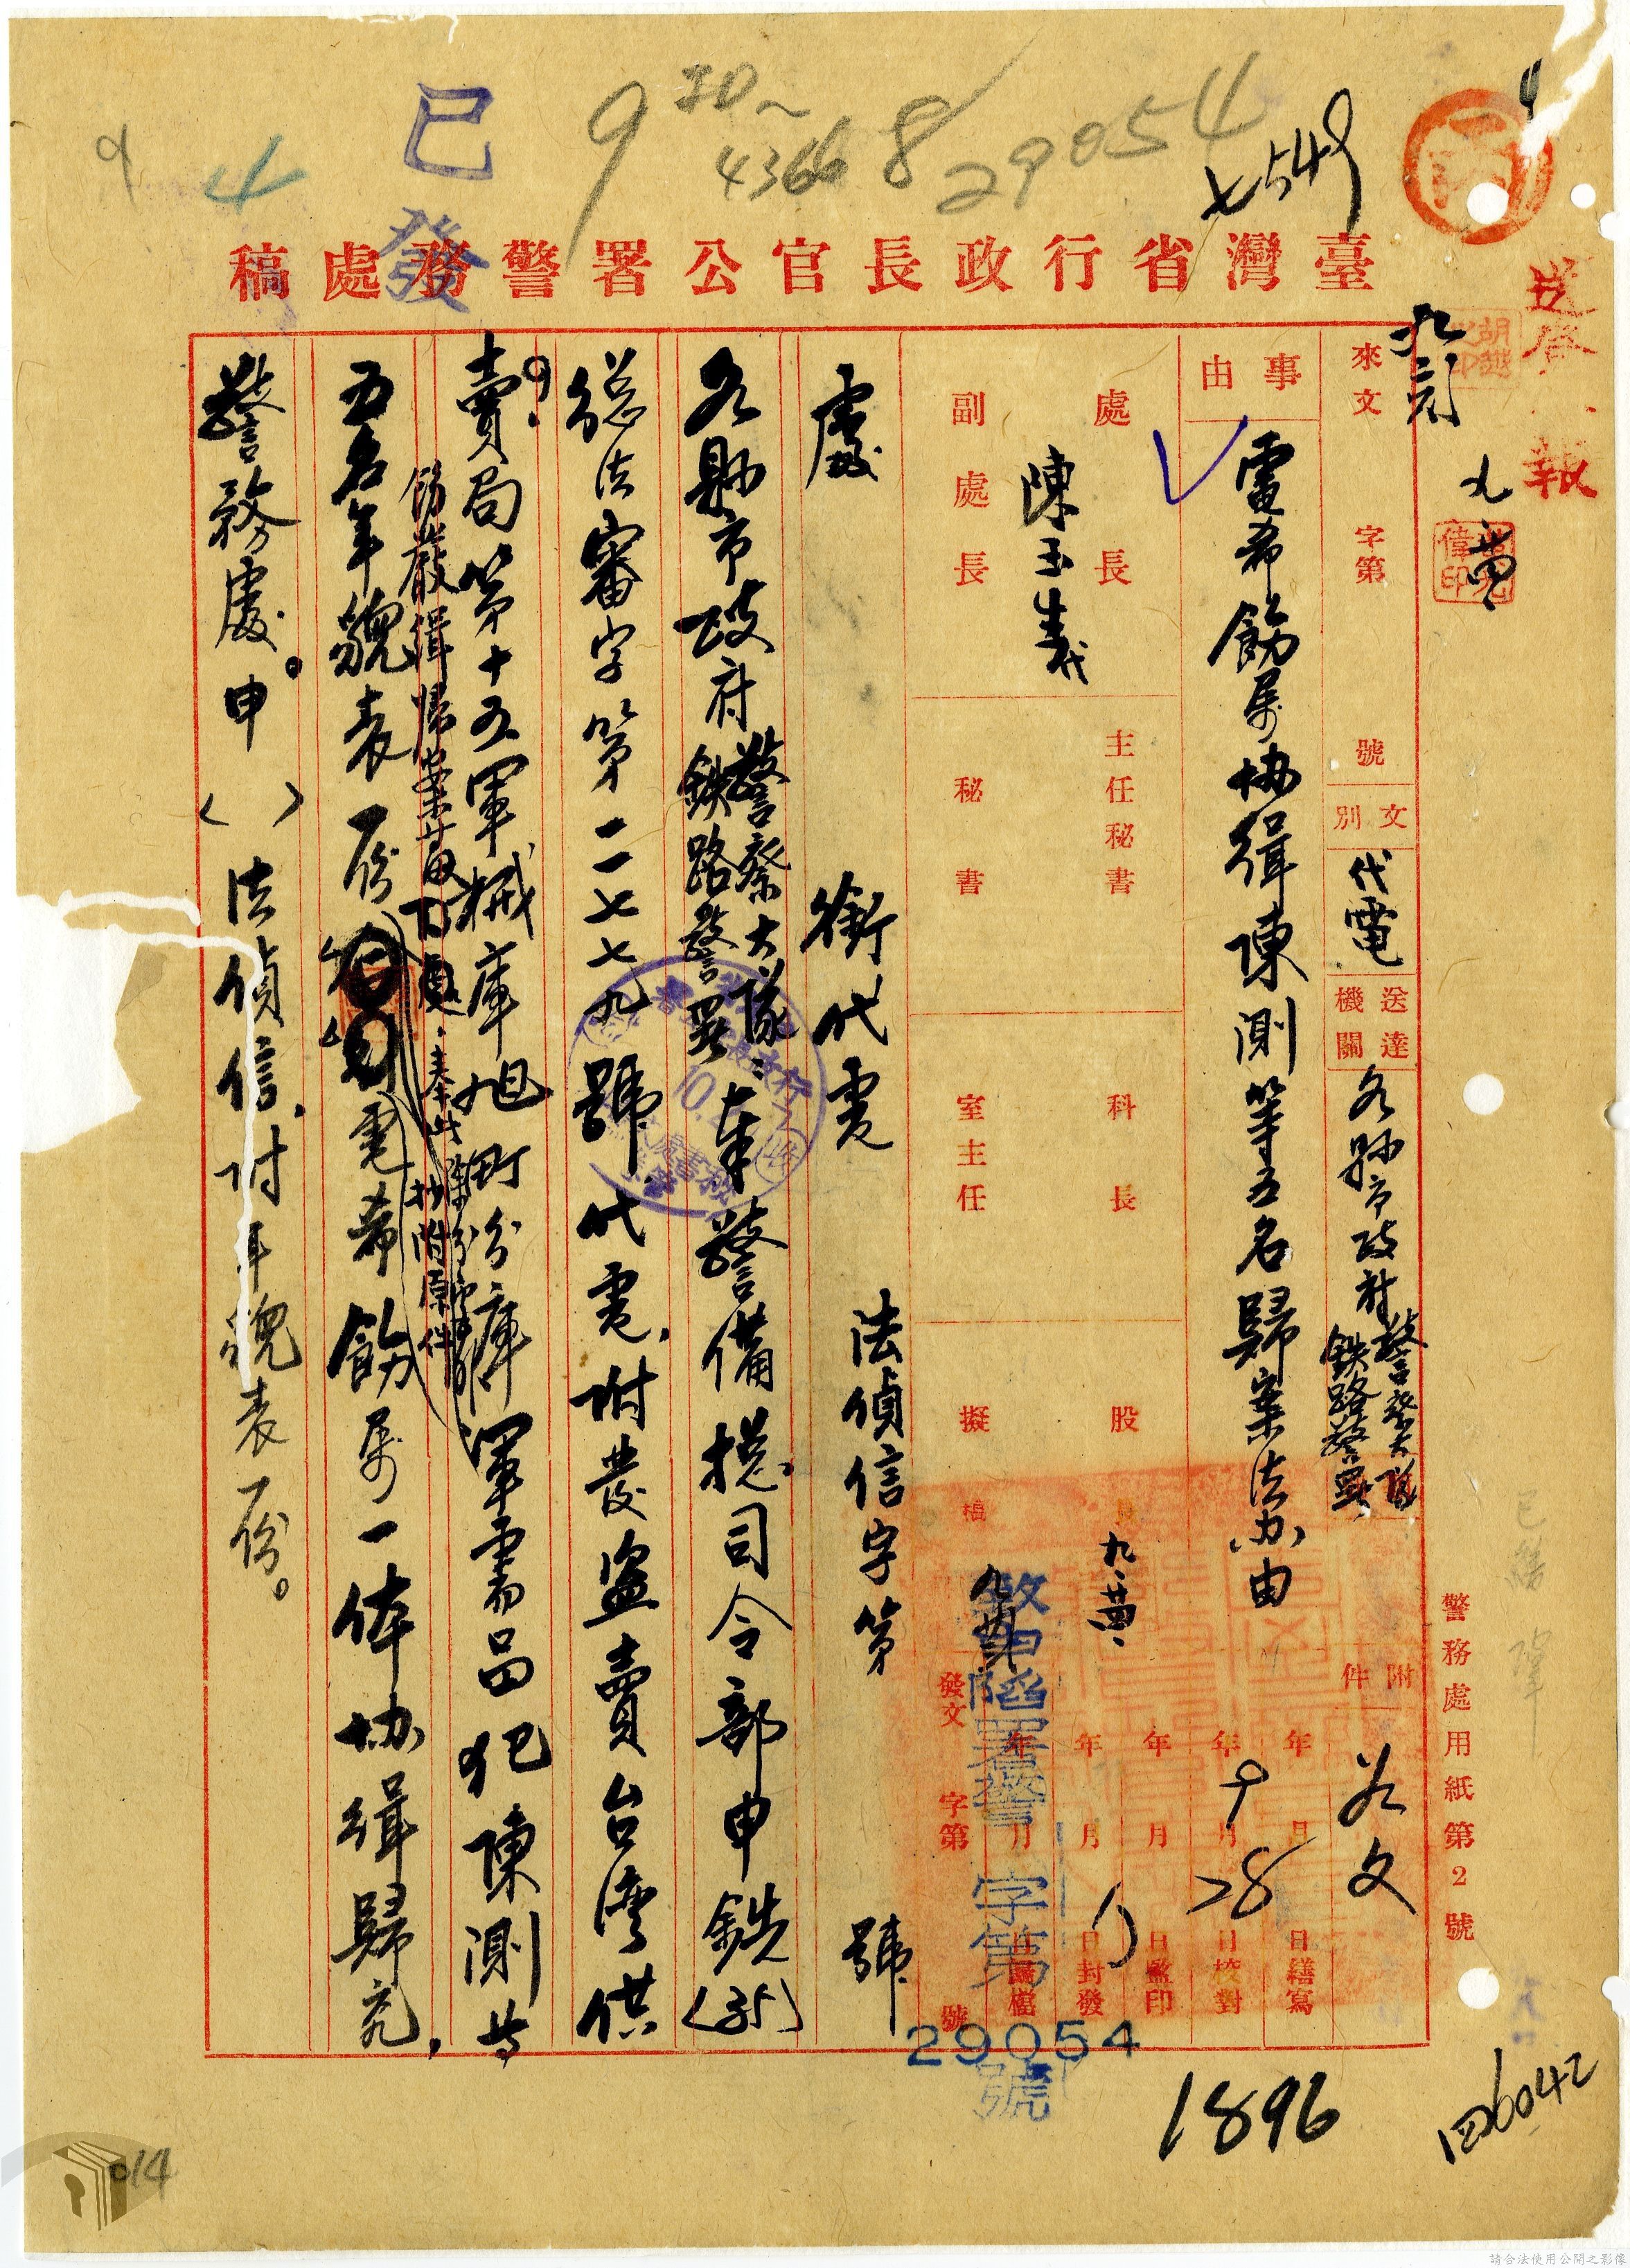 臺灣省行政長官公署警務處稿
已發
9
4366
8
29054
七549
送登
報
來文
字第
號
文別
代電
送達機關
各縣市政府警察大隊鉄路警署
附件
如文
事由
電希飭屬協緝陳測等五名歸案法办由
處長
陳玉生代
副處長
主任秘書
秘書
科長
室主任
股長
擬稿
年 月 日繕寫
年 9月 28日校對
年 月 日監印
年 月 日封發
年 月 日歸檔
發文 字第 號
字第
29054
號
處 銜代電 法偵信字第 號
各縣市政府警察大隊鉄路警署:奉警備總司令部申銑(35)
總法審字第二一七七九號代電,附發盜賣台灣供
賣局第十五軍械庫旭町分庫軍需品犯陳測等
飭嚴緝歸案
奉此除分電外抄附原件
五名年貌表一份
電希飭屬一体協緝歸究,
警務處。申( )法偵信,附年貌表一份。
警務處用紙第2號
1896
四6042
014
請合法使用公開之影像